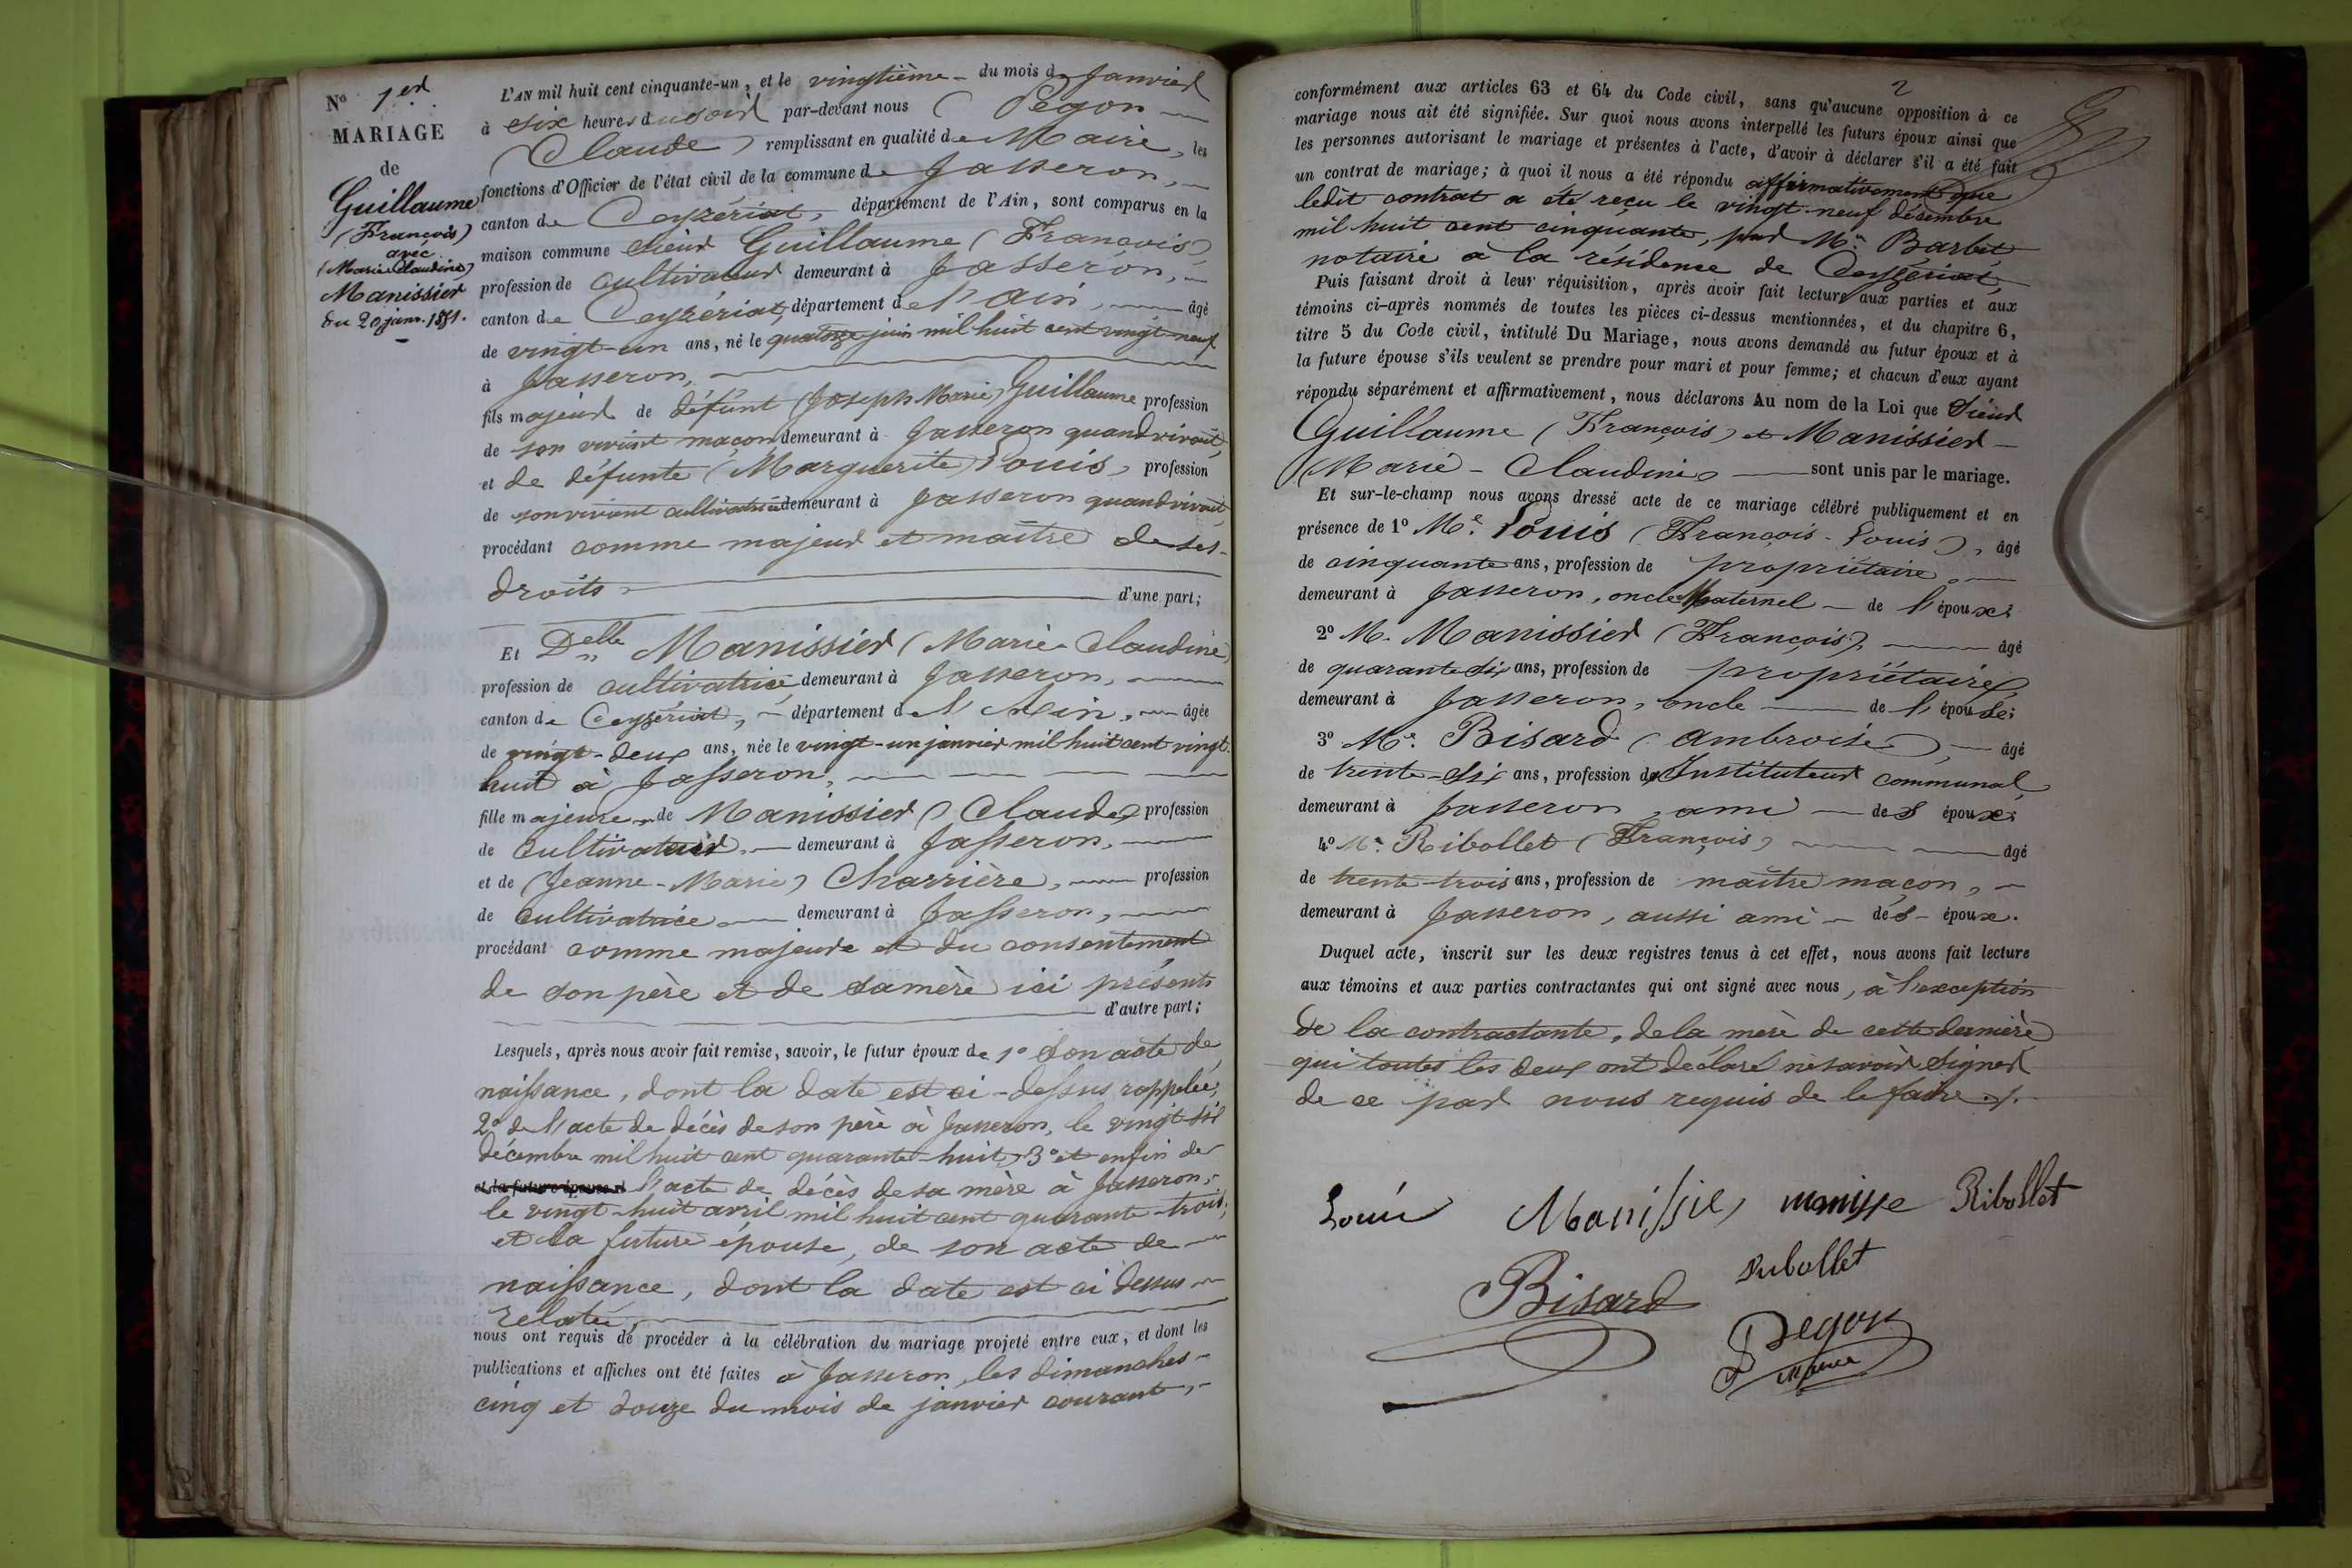 N° 1er
MARIAGE
de
Guillaume
(François)
avec
(Marie Claudine)
Manissier
du 20 janv. 1851.
L'AN mil huit cent cinquante-un, et le vingtième du mois de Janvier
à six heures du soir par-devant nous (Pegon
Claude) remplissant en qualité de Maire, les
fonctions d'Officier de l'état civil de la commune de Jasseron,
canton de Ceyzériat, département de l'Ain, sont comparus en la
maison commune sieur Guillaume (François),
profession de cultivateur demeurant à Jasseron,
canton de Ceyzériat, département de l'ain, âgé
de vingt-un ans, né le quatorze juin mil huit cent vingt-neuf
à Jasseron,
fils majeur de défunt (Joseph Marie) Guillaume profession
de son vivant maçon demeurant à Jasseron quand vivait,
et de défunte (Marguerite) Louis, profession
de son vivant cultivatrice demeurant à Jasseron quand vivait,
procédant comme majeur et maître de ses
droits d'une part;
Et Delle Manissier (Marie-Claudine)
profession de cultivatrice demeurant à Jasseron,
canton de Ceyzériat, département de l'Ain, âgée
de vingt-deux ans, née le vingt-un janvier mil huit cent vingt
huit à Jasseron,
fille majeure de Manissier (Claude) profession
de cultivateur, demeurant à Jasseron,
et de (Jeanne-Marie) Charrière, profession
de cultivatrice demeurant à Jasseron,
procédant comme majeure et du consentement
de son père et de sa mère ici présents
d'autre part;
Lesquels, après nous avoir fait remise, savoir, le futur époux de 1° son acte de
naissance, dont la date est ci-dessus rappelée;
2° de l'acte de décès de son père à Jasseron, le vingt-six
décembre mil huit cent quarante-huit, 3° et enfin de
et la future épouse d l'acte de décès de sa mère à Jasseron,
le vingt-huit avril mil huit cent quarante-trois;
et la future épouse, de son acte de
naissance, dont la date est ci dessus
relatée,
nous ont requis de procéder à la célébration du mariage projeté entre eux, et dont les
publications et affiches ont été faites à Jasseron, les dimanches
cinq et douze du mois de janvier courant,
2
conformément aux articles 63 et 64 du Code civil, sans qu'aucune opposition à ce
mariage nous ait été signifiée. Sur quoi nous avons interpellé les futurs époux ainsi que
les personnes autorisant le mariage et présentes à l'acte, d'avoir à déclarer s'il a été fait
un contrat de mariage; à quoi il nous a été répondu affirmativement que
ledit contrat a été reçu le vingt-neuf décembre
mil huit cent cinquante, par Me Barbet
notaire à la résidence de Ceyzériat
Puis faisant droit à leur réquisition, après avoir fait lecture aux parties et aux
témoins ci-après nommés de toutes les pièces ci-dessus mentionnées, et du chapitre 6,
titre 5 du Code civil, intitulé Du Mariage, nous avons demandé au futur époux et à
la future épouse s'ils veulent se prendre pour mari et pour femme; et chacun d'eux ayant
répondu séparément et affirmativement, nous déclarons Au nom de la Loi que sieur
Guillaume (François) et Manissier
(Marie-Claudine) sont unis par le mariage.
Et sur-le-champ nous avons dressé acte de ce mariage célébré publiquement et en
présence de 1° Mr. Louis (François-Louis), âgé
de cinquante ans, profession de propriétaire,
demeurant à Jasseron, oncle Maternel de l'époux;
2° M. Manissier (François), âgé
de quarante six ans, profession de propriétaire,
demeurant à Jasseron, oncle de l'épouse;
3° Mr. Bisard (Ambroise), âgé
de trente-six ans, profession de Instituteur communal,
demeurant à Jasseron, ami des époux;
4° Mr. Ribollet (François) âgé
de trente-trois ans, profession de maître maçon,
demeurant à Jasseron, aussi ami des époux.
Duquel acte, inscrit sur les deux registres tenus à cet effet, nous avons fait lecture
aux témoins et aux parties contractantes qui ont signé avec nous, à l'exception
de la contractante, de la mère de cette dernière
qui toutes les deux ont déclaré ne savoir signer
de ce par nous requis de le faire ./.
Louis Manissie manisse Ribollet
Bisard Ribollet
Pegon
Maire